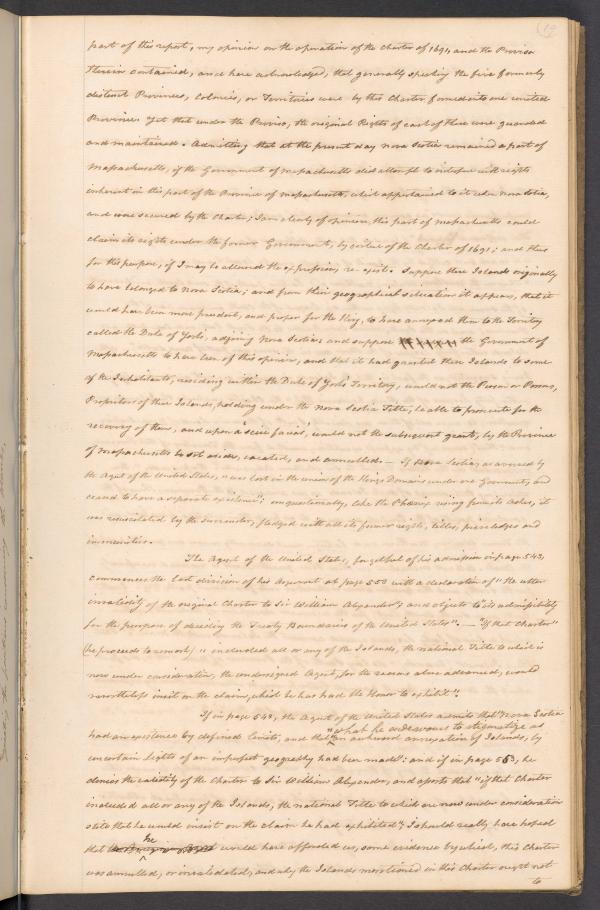 part of this report, my opinion on the operation of the Charter of 1691, and the Proviso
therein contained, and here acknowledged, that generally speaking the five formerly
distinct Provinces, Colonies, or Territories were by this Charter formed into one united
Province: Yet that under the Proviso, the original Rights of each of these were guarded
and maintained. Admitting that at the present day Nova Scotia remained a part of
Massachusetts, if the Government of Massachusetts did attempt to interfere with rights
inherent in this part of the Province of Massachusetts, which appertained to it when Nova Scotia,
and were secured by the Charter; I am clearly of opinion, this part of Massachusetts could
claim its rights under the former Government, by virtue of the Charter of 1691; and thus
for this purpose, if I may be allowed the expression, re-exist. Suppose these Islands originally
to have belonged to Nova Scotia; and from their geographical situation it appears, that it
would have been more prudent, and proper for the King, to have annexed them to the Territory
called the Duke of York's, adjoining Nova Scotia; and suppose the Government of
Massachusetts to have been of this opinion, and that it had granted these Islands to some
of the Inhabitants, residing within the Duke of York's Territory, would not the Person or Persons,
Proprietors of these Islands, holding under the Nova Scotia Title, be able to prosecute for the
recovery of them, and upon a "scire facias", would not the subsequent grant, by the Province
of Massachusetts be set aside, vacated, and annulled. — If Nova Scotia, as averred by
the Agent of the United States, "was lost in the union of the Kings Domains under one Government, and
ceased to have a separate existence"; unquestionably, like the Phœnix rising from its ashes, it
was resuscitated by the surrender, fledged with all its former rights, titles, priviledges and
immunities.
The Agent of the United States, forgetful of his admission in page 543,
commences the last division of his Argument at page 550 with a declaration of "the utter
invalidity of the original Charter to Sir William Alexander"; and objects to "its admissibility
for the purpose of deciding the Treaty Boundaries of the United States". — "If that Charter"
(he proceeds to remark) "included all or any of the Islands, the national Title to which is
now under consideration, the undersigned Agent, for the reasons above advanced, would
nevertheless insist on the claim, which he has had the Honor to exhibit".
If in page 543, the Agent of the United States admits that "Nova Scotia
had an existence by defined limits, and that what he endeavours to stigmatize as
"an awkward annexation of Islands, by
uncertain lights of an imperfect geography had been made": and if in page 553, he
denies the validity of the Charter to Sir William Alexander, and asserts that "if that Charter
included all or any of the Islands, the national Title to which are now under consideration
still that he would insist on the claim he had exhibited"; I should really have hoped
that he would have afforded us, some evidence by which, this Charter
was annulled, or invalidated, and why the Islands mentioned in this Charter ought not
to